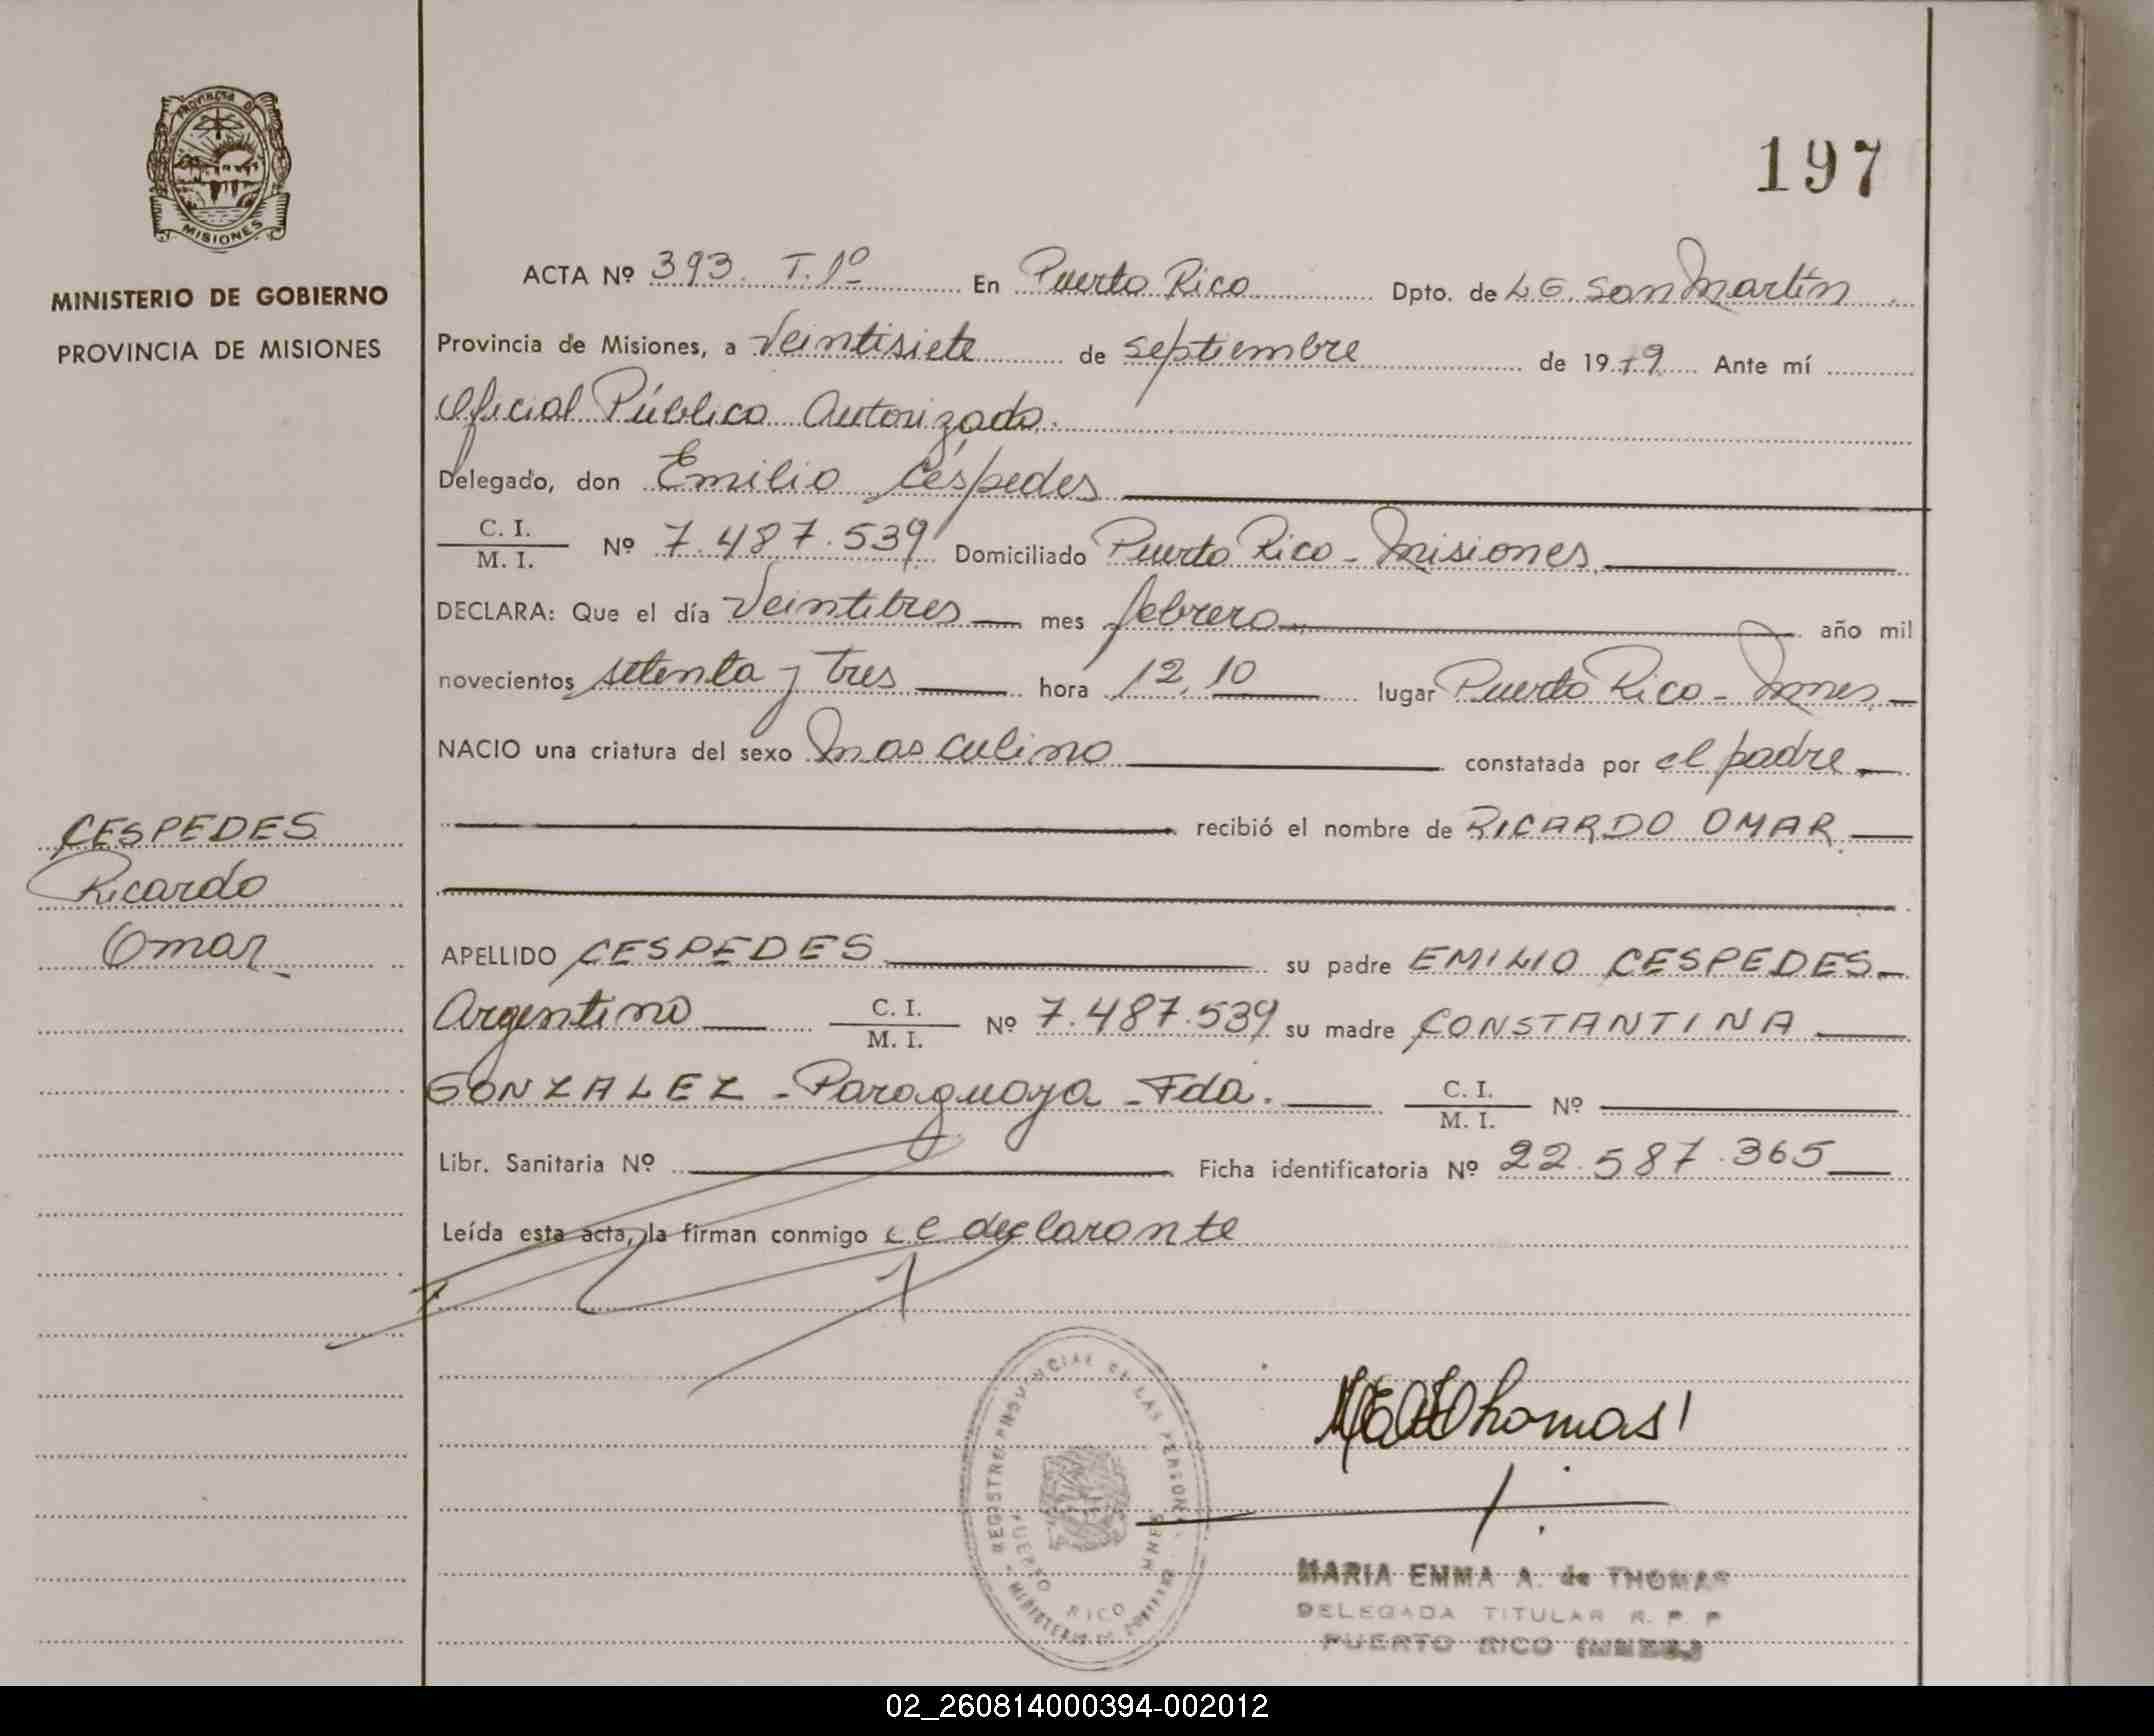 PROVINCIA DE
MISIONES
MINISTERIO DE GOBIERNO
PROVINCIA DE MISIONES
CESPEDES
Ricardo
Omar
197
ACTA Nº 393. T.1º En Puerto Rico Dpto. de L.G. San Martín
Provincia de Misiones, a Veintisiete de septiembre de 1979 Ante mí
Oficial Público Autorizado.
Delegado, don Emilio Céspedes
C. I.
M. I. Nº 7.487.539 Domiciliado Puerto Rico - Misiones
DECLARA: Que el día Veintitres mes febrero año mil
novecientos setenta y tres hora 12,10 lugar Puerto Rico - Mnes.
NACIO una criatura del sexo Masculino constatada por el padre
recibió el nombre de RICARDO OMAR
APELLIDO CESPEDES su padre EMILIO CESPEDES
Argentino C. I.
M. I. Nº 7.487.539 su madre CONSTANTINA
GONZALEZ - Paraguaya - Fda. C. I.
M. I. Nº
Libr. Sanitaria Nº Ficha identificatoria Nº 22.587.365
Leída esta acta, la firman conmigo el declarante
REGISTRO PROVINCIAL DE LAS PERSONAS
PUERTO RICO MNES
MINISTERIO DE GOBIERNO
Thomas
MARIA EMMA A. de THOMAS
DELEGADA TITULAR R. P. P
PUERTO RICO (MNES.)
02_260814000394-002012